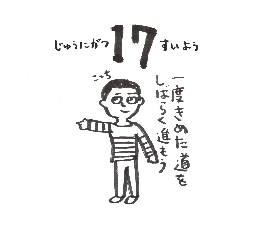 じゅうにがつ 17 すいよう
こっち
一度きめた道を
しばらく進もう